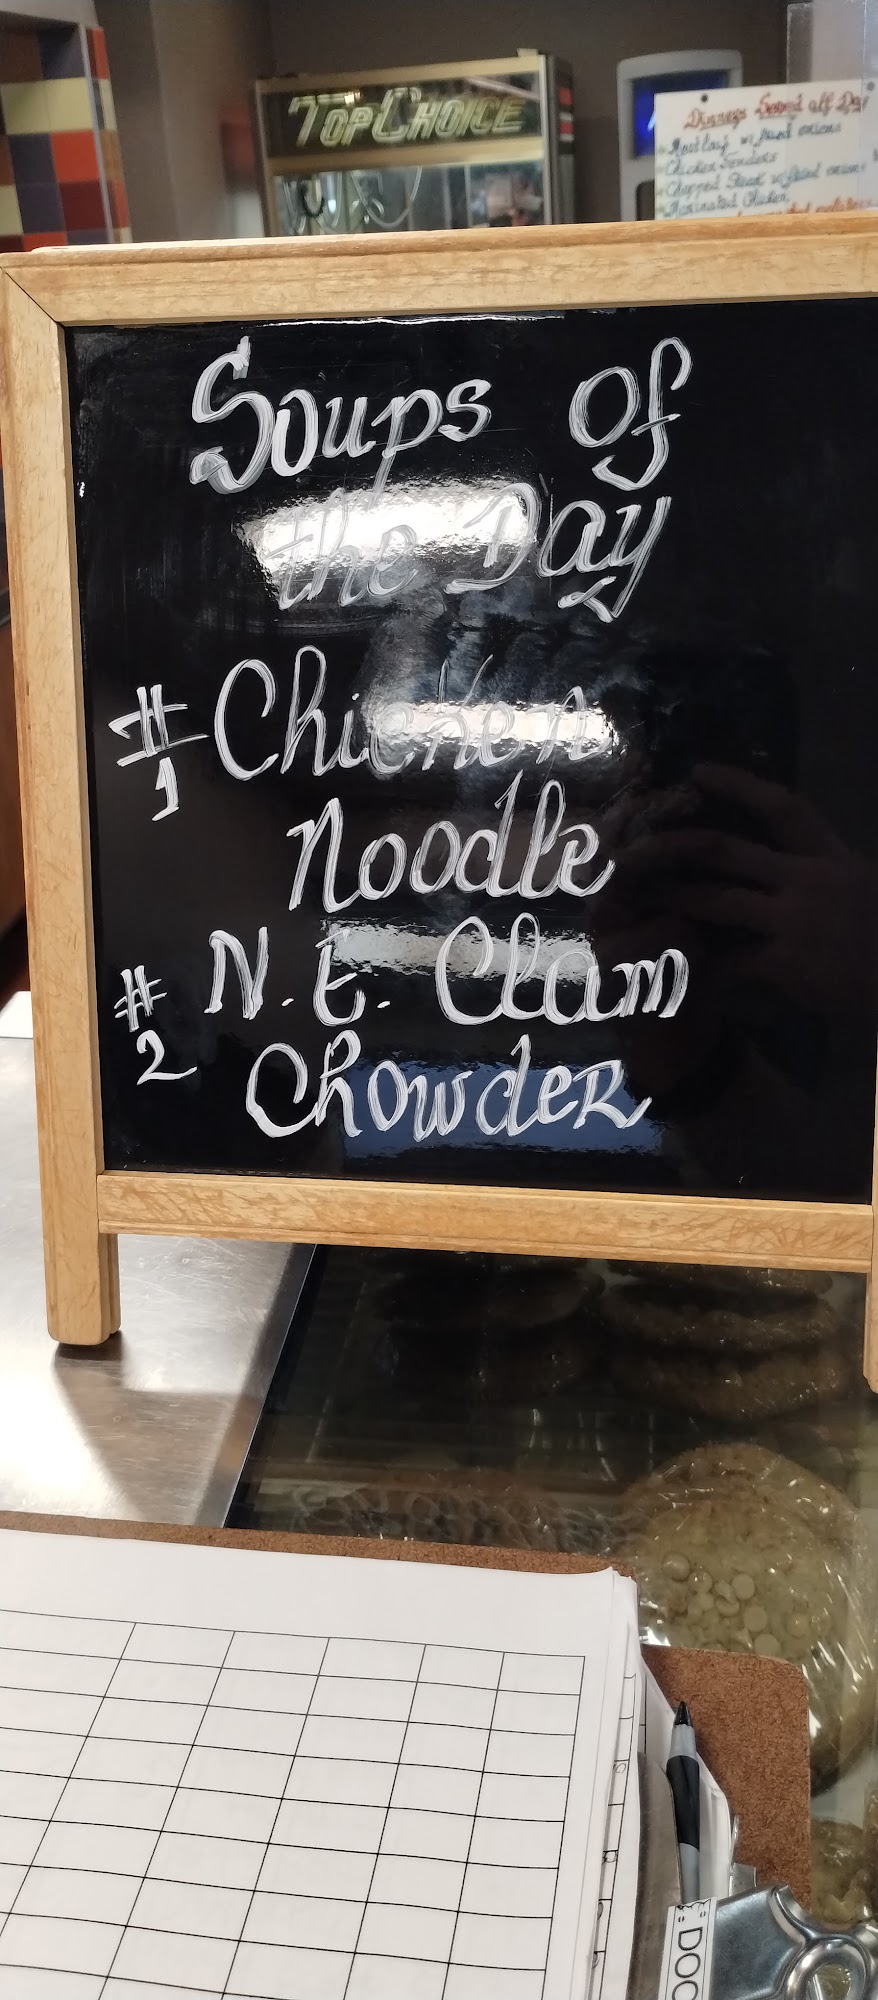 TOP CHOICE
Dinners Served all Day
Meatloaf w/ fried onions
Chicken Tenders
Chopped Steak w/fried onions
Marinated Chicken
Soups of
the Day
#1 Chicken
Noodle
#2 N.E. Clam
Chowder
DOC